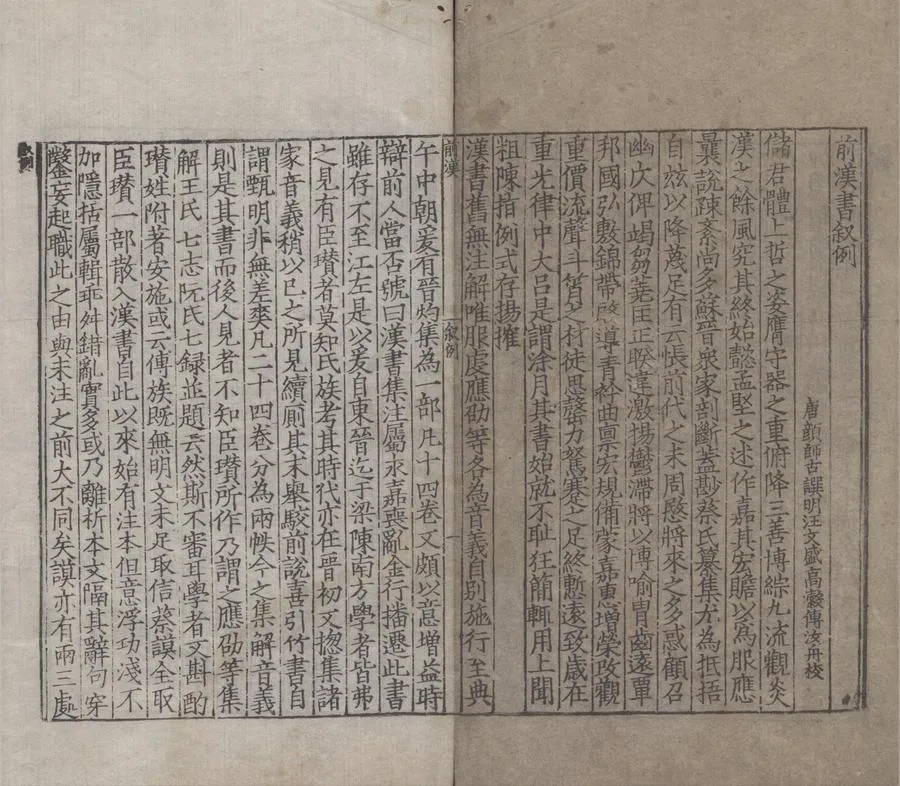 前漢書叙例
唐顔師古譔明汪文盛高瀫傅汝舟校
儲君體上哲之姿膺守器之重俯降三善博綜九流觀炎
漢之餘風究其終始懿孟堅之述作嘉其宏贍以為服應
曩說疎紊尚多蘇晉衆家剖斷蓋尠蔡氏纂集尤為抵捂
自玆以降蔑足有云悵前代之未周愍將來之多惑顧召
幽仄俾竭芻蕘匡正睽違激揚鬱滯將以博喻胄齒遠覃
邦國弘敷錦帶啓導青衿曲禀宏規備蒙嘉惠增榮改觀
重價流聲斗筲之材徒思罄力駑蹇之足終慙遠致歲在
重光律中大呂是謂涂月其書始就不耻狂簡輒用上聞
粗陳指例式存揚搉
漢書舊無注解唯服虔應劭等各為音義自别施行至典
前漢
叙例
一
午中朝爰有晉灼集為一部凡十四卷又頗以意增益時
辯前人當否號曰漢書集注屬永嘉喪亂金行播遷此書
雖存不至江左是以爰自東晉迄于梁陳南方學者皆弗
之見有臣瓚者莫知氏族考其時代亦在晉初又揔集諸
家音義稍以已之所見續厠其末舉駮前說喜引竹書自
謂甄明非無差爽凡二十四卷分為兩帙今之集解音義
則是其書而後人見者不知臣瓚所作乃謂之應劭等集
解王氏七志阮氏七録並題云然斯不審耳學者又斟酌
瓚姓附著安施或云傳族既無明文未足取信蔡謨全取
臣瓚一部散入漢書自此以來始有注本但意浮功淺不
加隱括屬輯乖舛錯亂實多或乃離析本文隔其辭句穿
鑿妄起職此之由與未注之前大不同矣謨亦有兩三處